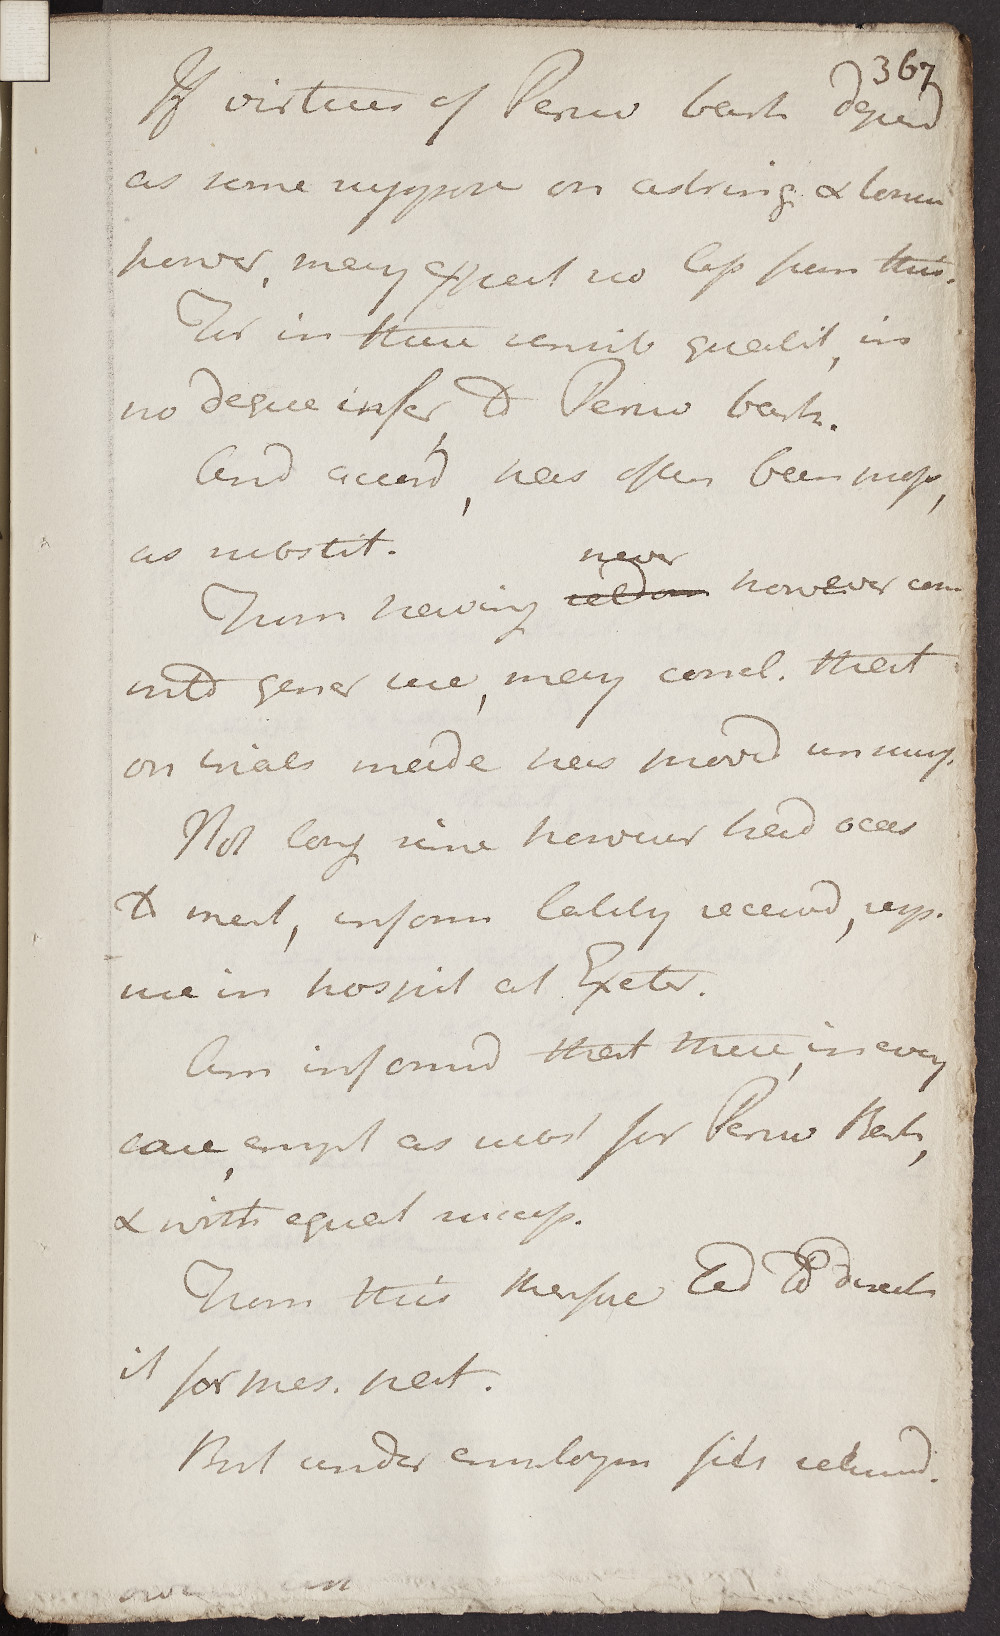 367
If virtues of Peruv bark depend
as some suppose on astring. & tonic
power, may expect no less from this.
For in these sensib qualit, is
no degree infer, to Peruv bark.
And accord, has often been propos,
as substit.
never
From having seldom however come
into gener use, may concl. that
on trials made has provd unsuccess.
Not long since however had occas
to meet, inform lately received, resp.
use in hospit at Exeter.
Am informd that there, in every
case, empl as subst for Peruv Bark,
& with equal success.
From this therefore led to direct
it for pres. pat.
But under employm fits returnd.